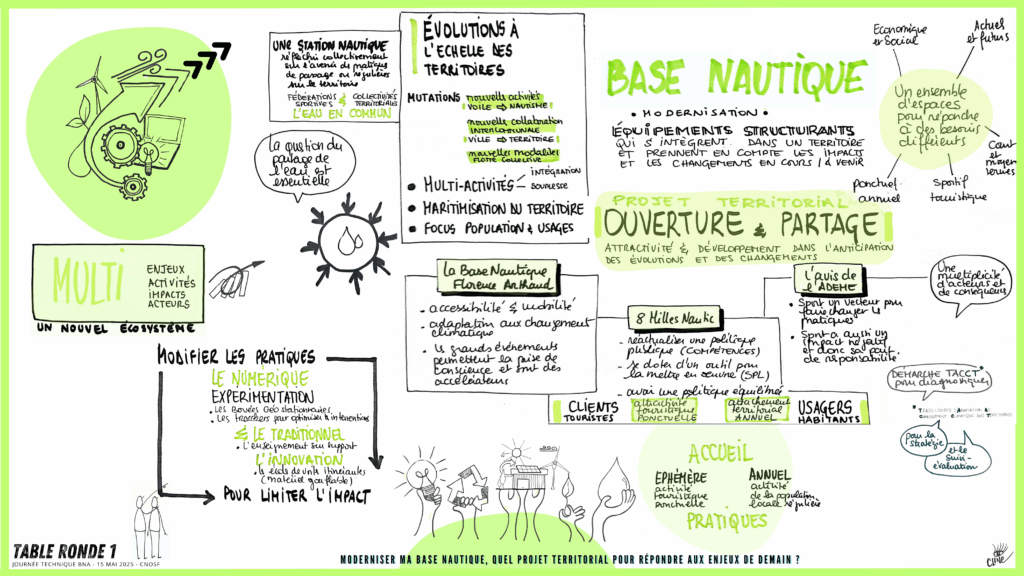 UNE STATION NAUTIQUE
réfléchi collectivement
sur l'avenir du pratique
de passage ou régulières
sur le territoire
FÉDÉRATIONS & COLLECTIVITÉS
SPORTIVES TERRITORIALES
L'EAU EN COMMUN
La question du
partage de
l'eau est
essentielle
ÉVOLUTIONS À
L'ECHELLE DES
TERRITOIRES
MUTATIONS
nouvelles activités
VOILE ⇨ NAUTISME
nouvelles collaboration
INTERCOMMUNALE
VILLE ⇨ TERRITOIRE
nouvelles modalités
FLOTTE COLLECTIVE
• MULTI-ACTIVITÉS
INTÉGRATION
SOUPLESSE
• MARITIMISATION DU TERRITOIRE
• FOCUS POPULATION & USAGES
BASE NAUTIQUE
• MODERNISATION •
ÉQUIPEMENTS STRUCTURANTS
QUI S'INTÈGRENT DANS UN TERRITOIRE
ET PRENNENT EN COMPTE LES IMPACTS
ET LES CHANGEMENTS EN COURS / À VENIR
Economique
et Social
Actuel
et futurs
Un ensemble
d'espaces
pour répondre
à des besoins
différents
Court
et moyen
termes
Ponctuel
annuel
Sportif
touristique
PROJET TERRITORIAL
OUVERTURE & PARTAGE
ATTRACTIVITÉ & DÉVELOPPEMENT DANS L'ANTICIPATION
DES ÉVOLUTIONS ET DES CHANGEMENTS
MULTI
ENJEUX
ACTIVITÉS
IMPACTS
ACTEURS
UN NOUVEL ÉCOSYSTÈME
La Base Nautique
Florence Arthaud
• accessibilité & mobilité
• adaptation aux changement
climatique
• les grands événements
permettent la prise de
conscience et sont des
accélérateurs
8 Milles Nautic
• réactualiser une politique
publique (COMPÉTENCES)
• se doter d'un outil pour
la mettre en oeuvre (SPL)
• avoir une politique équilibrée
L'avis de
l'ADEME
• Sport un vecteur pour
faire changer les
pratiques
• Sport a aussi un
impact négatif
et donc sa part
de responsabilité
Une
multiplicité
d'acteurs et
de conséquences
DEMARCHE TACCT
pour diagnostiquer
pour la
stratégie
et le
suivi-
évaluation
CLIENTS
TOURISTES
attractivité
touristique
PONCTUELLE
attachement
territorial
ANNUEL
USAGERS
HABITANTS
MODIFIER LES PRATIQUES
LE NUMÉRIQUE
EXPERIMENTATION
• Les Bouées Géo stationnaires
• Les trackers pour optimiser les interventions
& LE TRADITIONNEL
• L'enseignement sur support
L'INNOVATION
(matériel gonflable)
POUR LIMITER L'IMPACT
ACCUEIL
EPHÉMÈRE
activité
touristique
ponctuelle
ANNUEL
activité
de la population
locale régulière
PRATIQUES
TABLE RONDE 1
JOURNÉE TECHNIQUE BNA - 15 MAI 2025 - CNOSF
MODERNISER MA BASE NAUTIQUE, QUEL PROJET TERRITORIAL POUR RÉPONDRE AUX ENJEUX DE DEMAIN ?